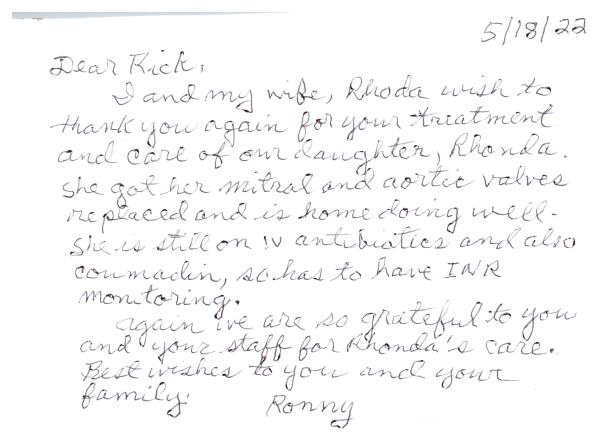 5/18/22
Dear Rick,
I and my wife, Rhoda wish to
thank you again for your treatment
and care of our daughter, Rhonda.
She got her mitral and aortic valves
replaced and is home doing well.
She is still on IV antibiotics and also
coumadin, so has to have INR
monitoring.
Again we are so grateful to you
and your staff for Rhonda's care.
Best wishes to you and your
family.
Ronny